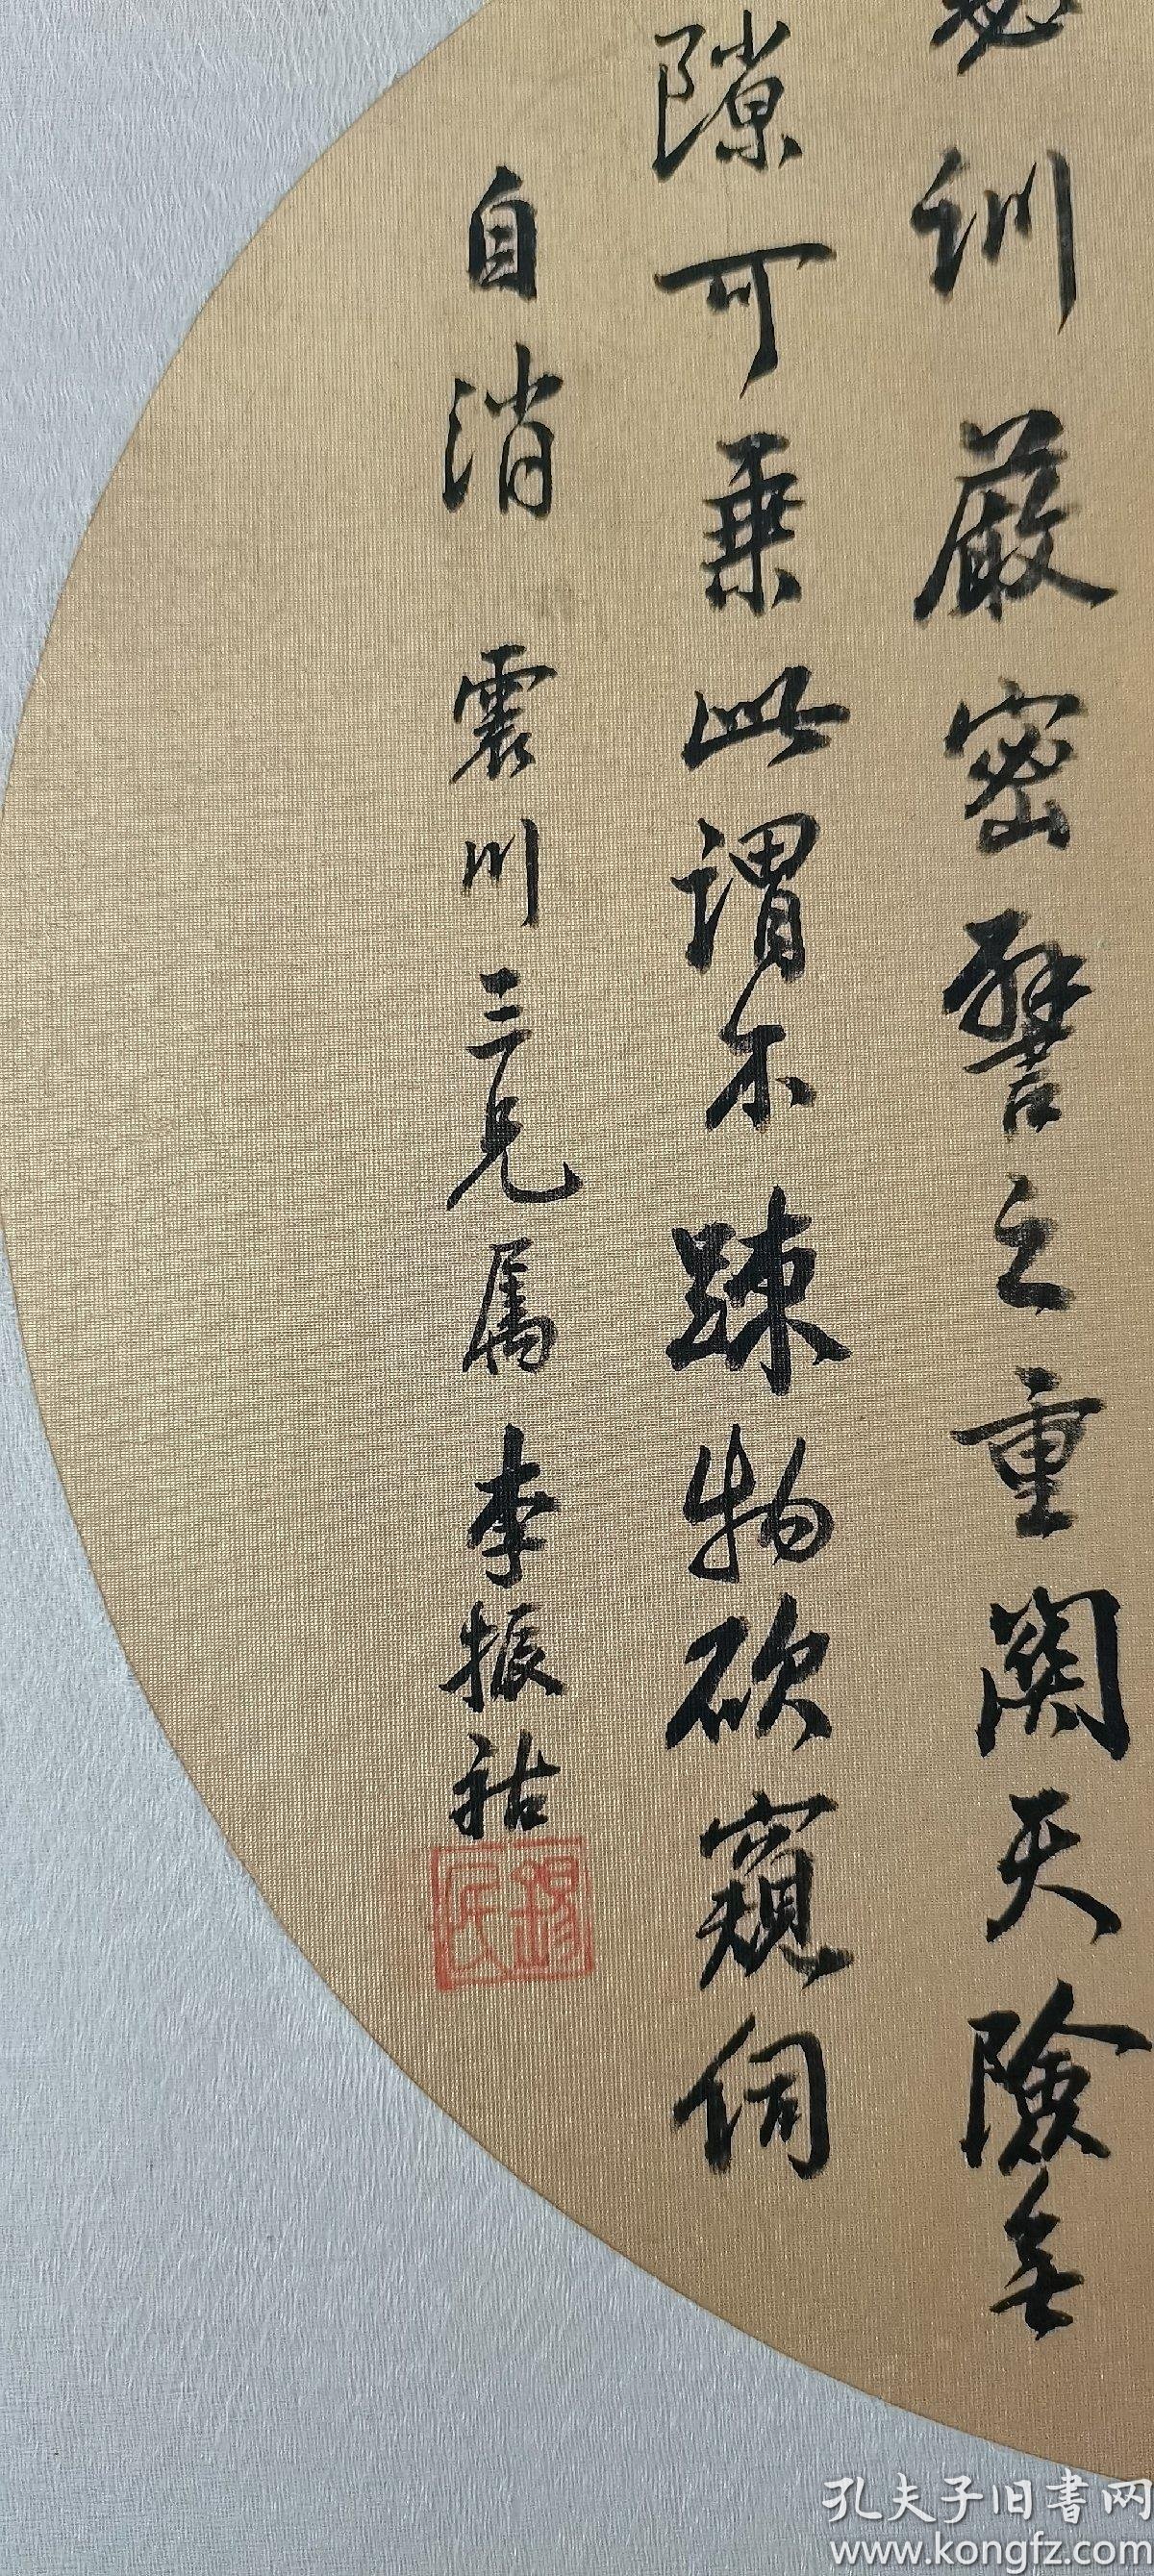 訓嚴密譬之重關天險無
隙可乘此謂不踈物欲窺伺
自消 震川三兄属 李振祜
錫民
孔夫子旧書网
www.kongfz.com